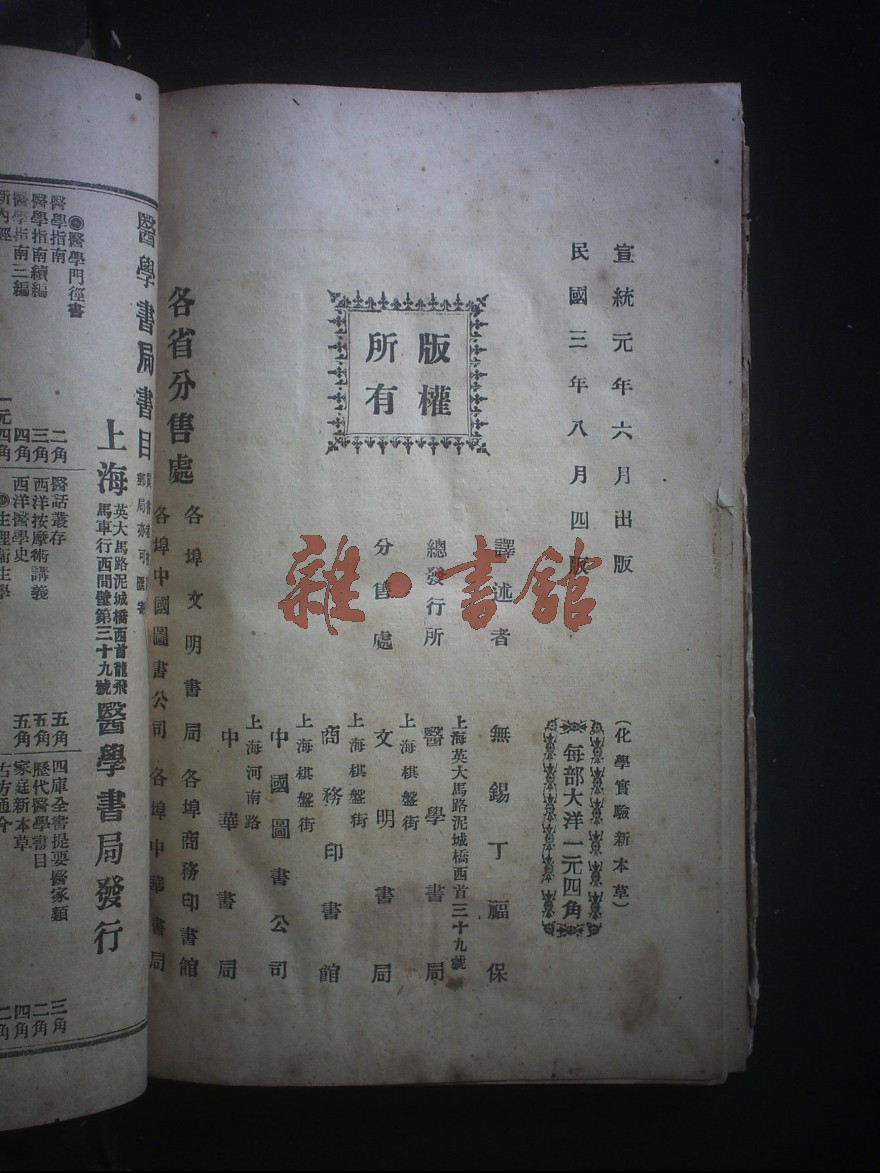 宣統元年六月出版
民國三年八月四版
(化學實驗新本草)
每部大洋一元四角
版權
所有
譯述者
無錫丁福保
總發行所
上海英大馬路泥城橋西首三十九號
醫學書局
分售處
上海棋盤街
文明書局
上海棋盤街
商務印書館
中國圖書公司
上海河南路
中華書局
各省分售處
各埠文明書局
各埠商務印書館
各埠中國圖書公司
各埠中華書局
雜·書館
醫學書局書目
郵局亦可匯寄
上海
英大馬路泥城橋西首龍飛
馬車行西間壁第三十九號
醫學書局發行
◉醫學門徑書
醫學指南
二角
醫學指南續編
三角
醫學指南三編
四角
新內經
一元四角
醫話叢存
五角
西洋按摩術講義
五角
西洋醫學史
五角
◉生理衛生學
四庫全書提要醫家類
三角
歷代醫學書目
二角
家庭新本草
四角
古方通今
二角